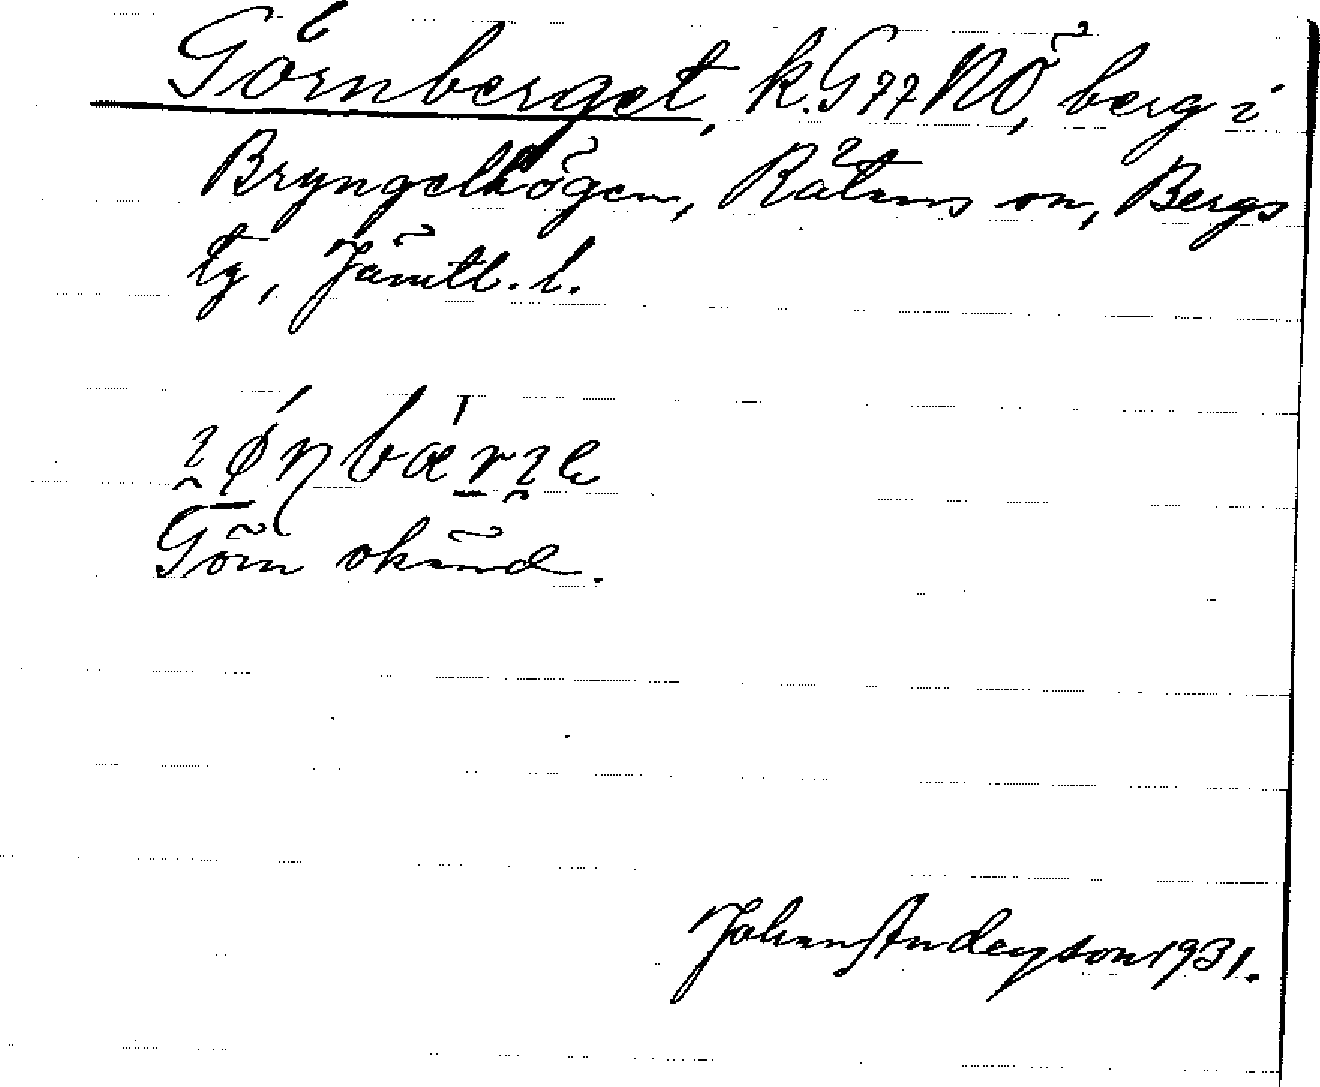 Görnberget, k. G77NÖ, berg i
Bryngelhögen, Rätans sn, Bergs
tg, Jämtl. l.
Görn okänd.
Johan Anderson 1931.